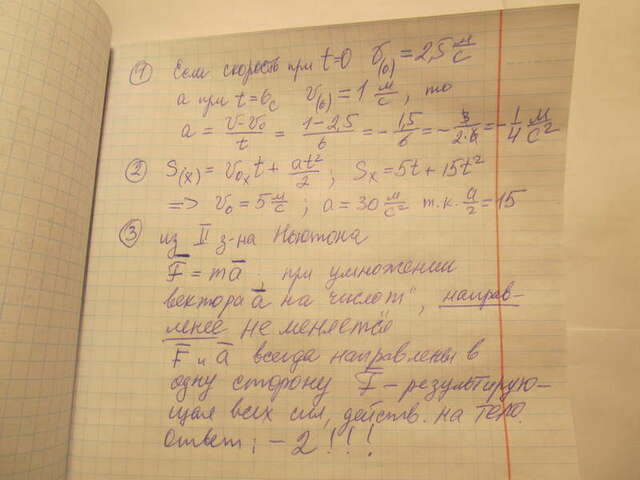 ① Если скорость при t=0 v(0) = 2,5 м/с
а при t=6с v(6) = 1 м/с, то
a = (v-v₀)/t = (1-2,5)/6 = -1,5/6 = -3/(2·6) = -1/4 м/с²
② S(x) = v₀ₓt + at²/2 ; Sx = 5t + 15t²
=> v₀ = 5 м/с ; a = 30 м/с² т.к. a/2 = 15
③ из II з-на Ньютона
F̅ = ma̅ при умножении
вектора a̅ на число "m", направ-
ление не меняется
F̅ и a̅ всегда направлены в
одну сторону F̅ - результирую-
щая всех сил, действ. на тело.
Ответ: - 2!!!